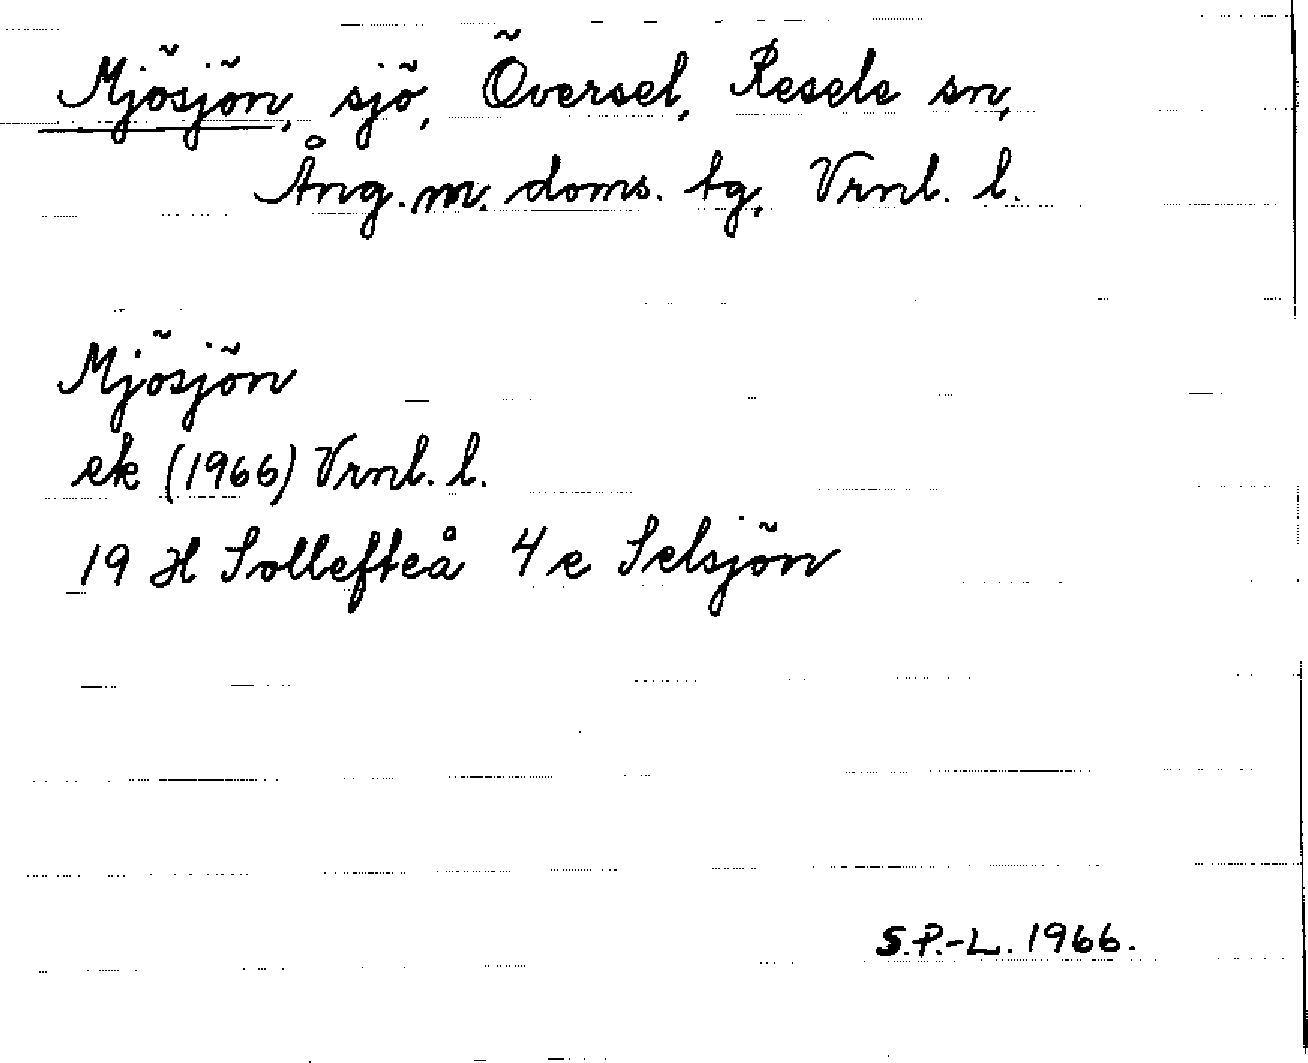 Mjösjön, sjö, Översel, Resele sn,
Ång. m. doms. tg, Vrnl. l.
Mjösjön
ek (1966) Vrnl. l.
19 H Sollefteå 4 e Selsjön
S.P.-L. 1966.